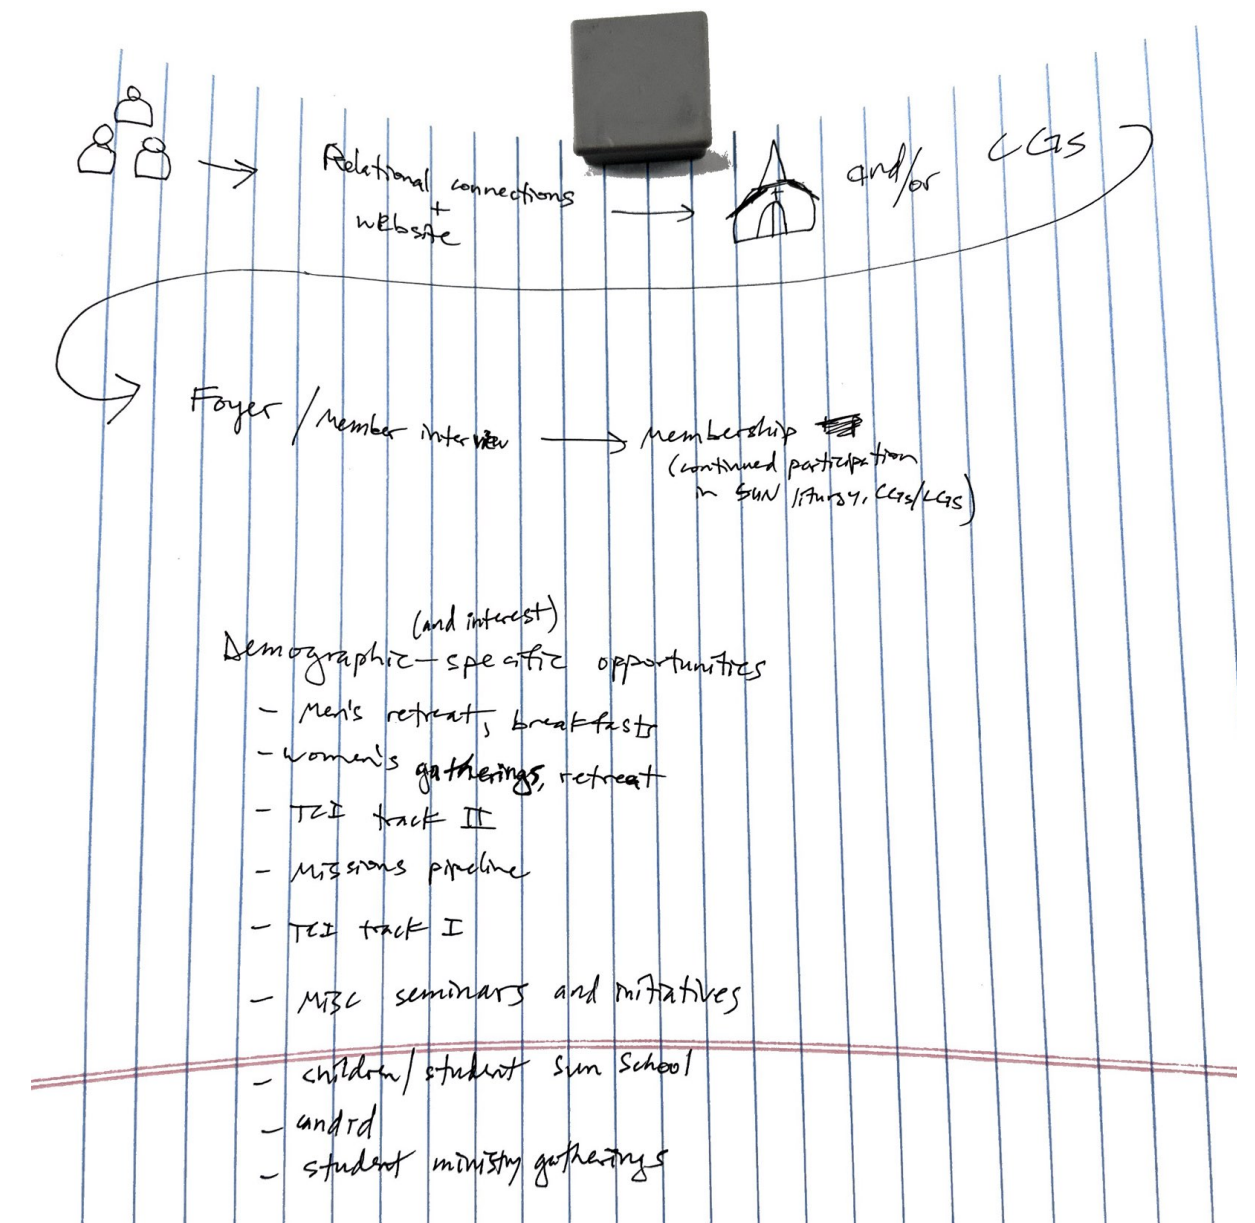 Relational connections
+
website
and/or
CGs
Foyer / Member interview
Membership
(continued participation
in SUN liturgy, CGs/LGs)
(and interest)
Demographic-specific opportunities
- Men's retreat, breakfasts
- women's gatherings, retreat
- TCI track II
- Missions pipeline
- TCI track I
- Misc seminars and initiatives
- children/student Sun School
- student ministry gatherings